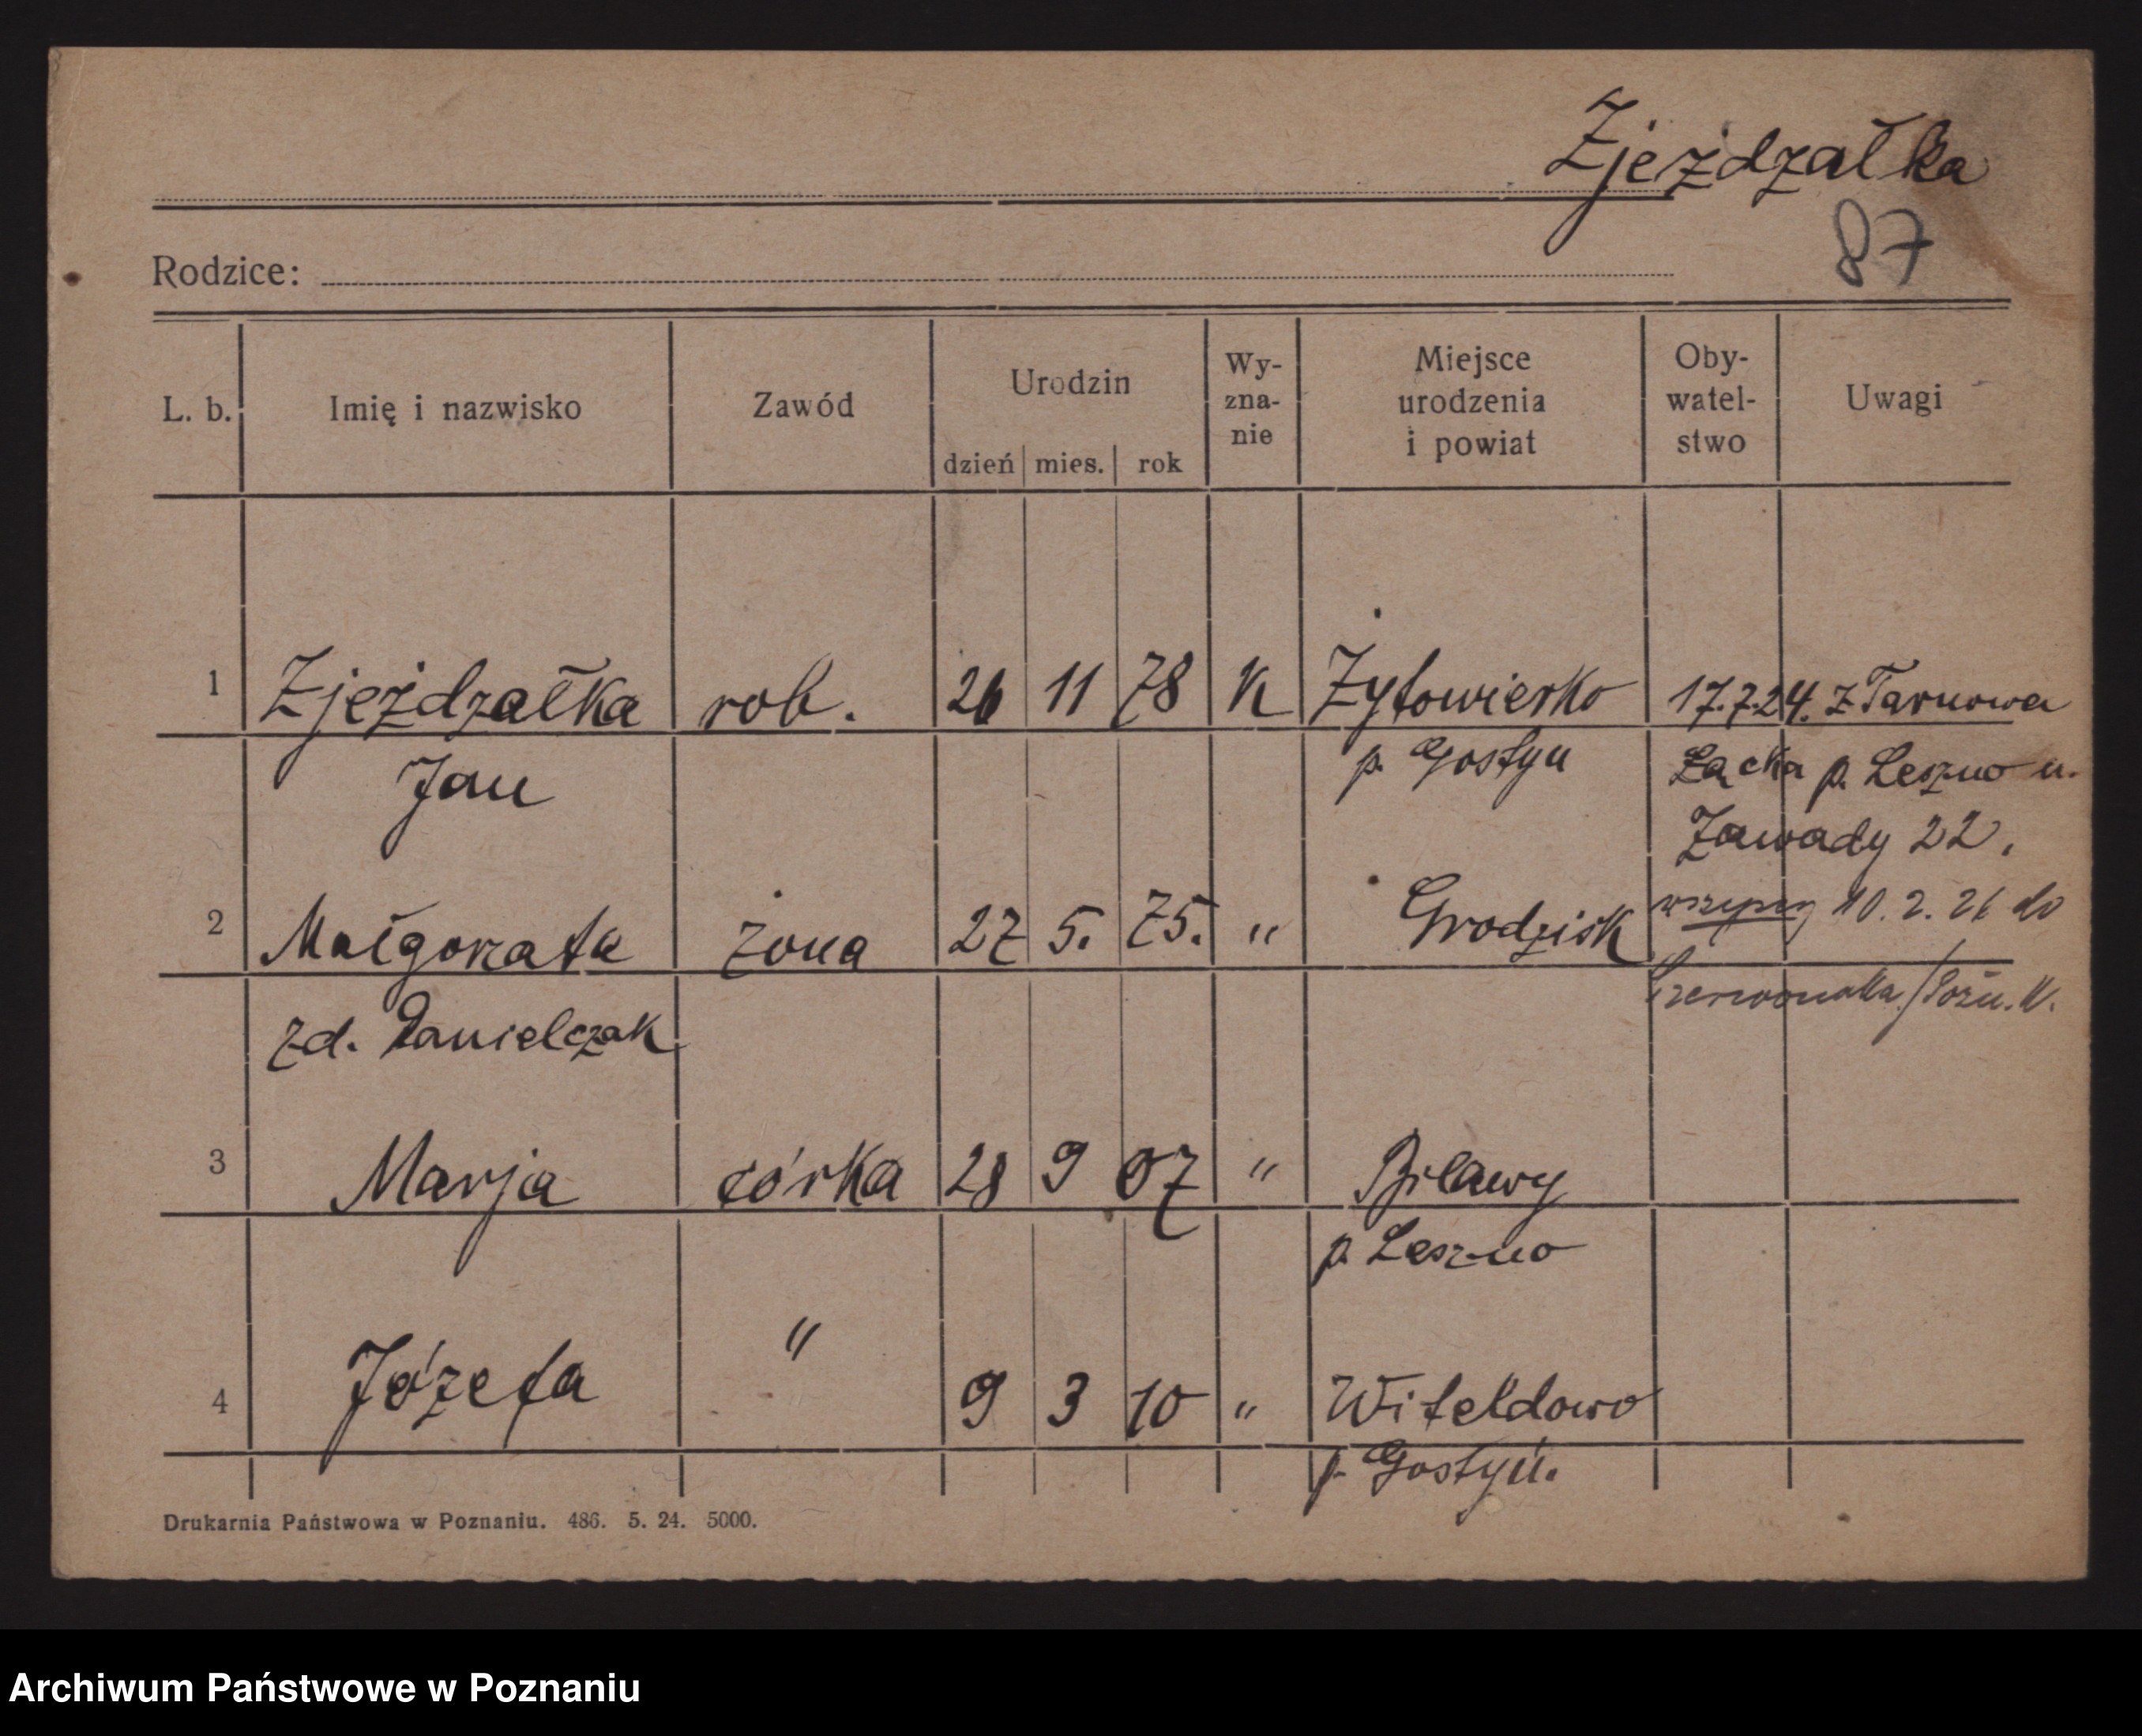 Zjeżdżałka
87
Rodzice:
L. b. Imię i nazwisko Zawód Urodzin dzień mies. rok Wy-zna-nie Miejsce urodzenia i powiat Oby-watel-stwo Uwagi
1 Zjeżdżałka rob. 26 11 78 K Żytowiecko 17.7.24. z Tarnowa
Jan p. Gostyń Łącka p. Leszno u.
Zawady 22.
2 Małgorzata żona 27 5. 75. " Grodzisk 10. 2. 26 do
zd. Danielczak Czerwonaka / Pozn. W.
3 Marja córka 28 9 07 " Bilawy
p. Leszno
4 Józefa " 9 3 10 " Witoldowo
p. Gostyń.
Drukarnia Państwowa w Poznaniu. 486. 5. 24. 5000.
Archiwum Państwowe w Poznaniu